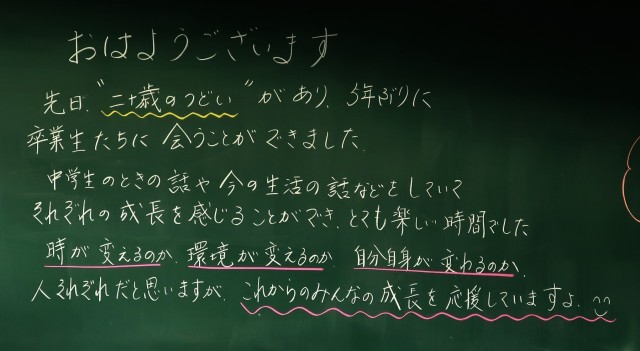 おはようございます
先日、"二十歳のつどい"があり、5年ぶりに
卒業生たちに会うことができました。
中学生のときの話や今の生活の話などをしていて
それぞれの成長を感じることができ、とても楽しい時間でした
時が変えるのか、環境が変えるのか、自分自身が変わるのか、
人それぞれだと思いますが、これからのみんなの成長を応援していますよ。